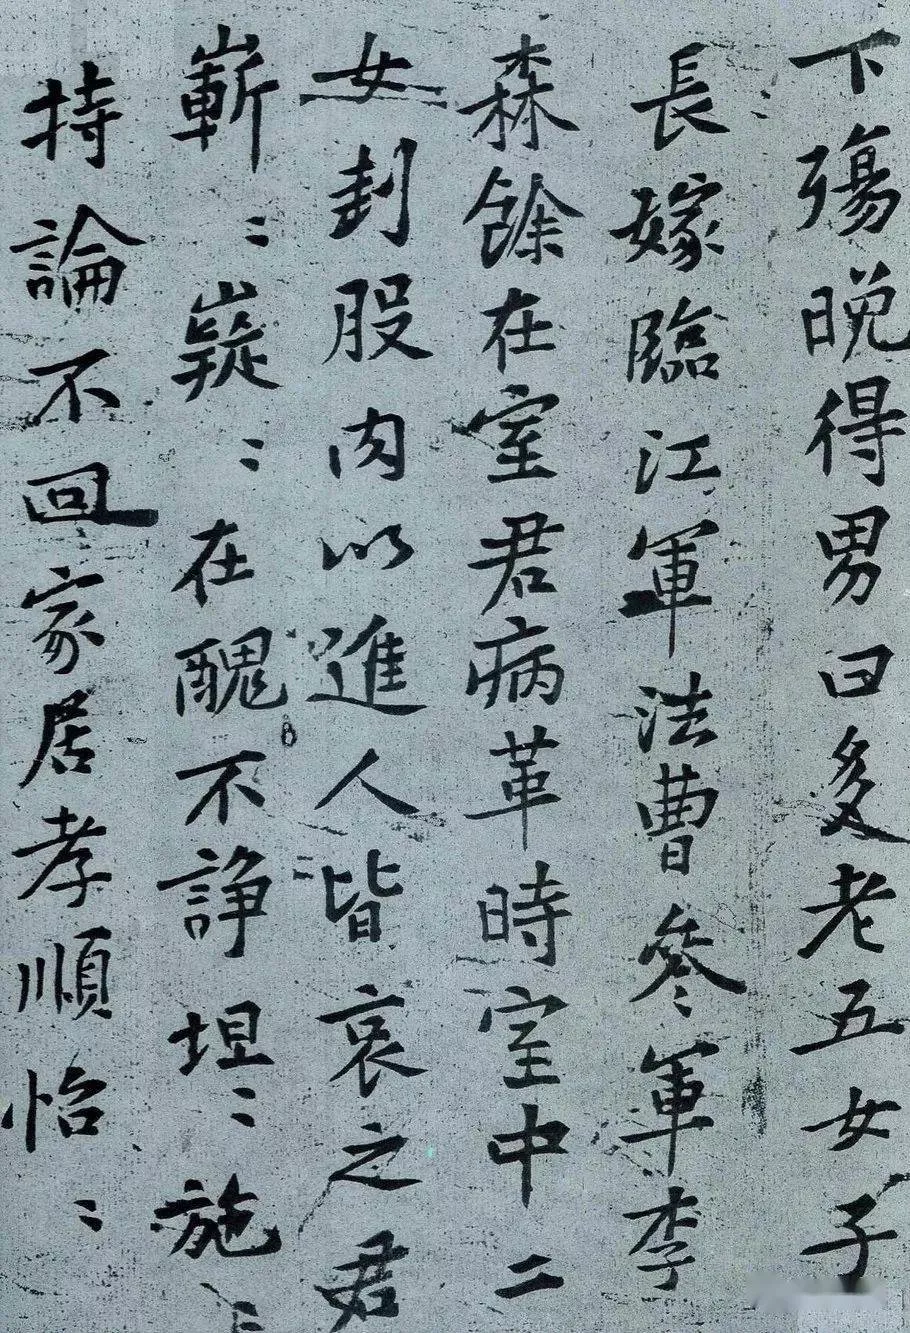 下殤晚得男曰多老五女子
長嫁臨江軍法曹參軍李
森餘在室君病革時室中二
女刲股肉以進人皆哀之君
嶄〻嶷〻在醜不諍坦〻施〻
持論不回家居孝順怡〻